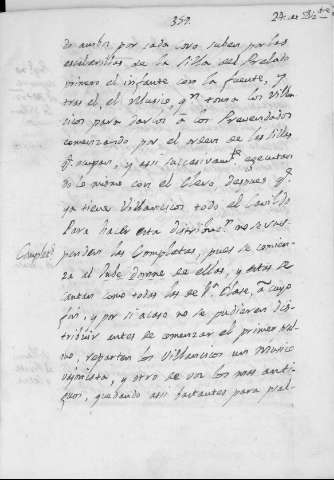 359.
24. de Diz.re
do ambos por cada coro suben por las
escalerillas de la Silla del Prelado
primero el infante con la fuente, y
tras el, el Musico, qn toma los Villan-
cicos para darlos à los Prevendados
comenzando por el orden de las sillas
qe ocupan, y assi succesivamte egecutan-
do lo mismo con el Clero, despues qe
ya tiene Villancicos todo el Cavildo
Para hacer esta distribuzn no se sus-
Complets
penden las Completas, pues se comien-
za al Jube domne de ellas, y estas se
cantan como todas las de 1a Clase, à cuyo
fin, y por si acaso no se pudieran dis-
tribuir antes de comenzar el primer Sal-
mo, reparten los Villancicos un Musico
, y otro de voz los mas anti-
guos, quedando assi bastantes para